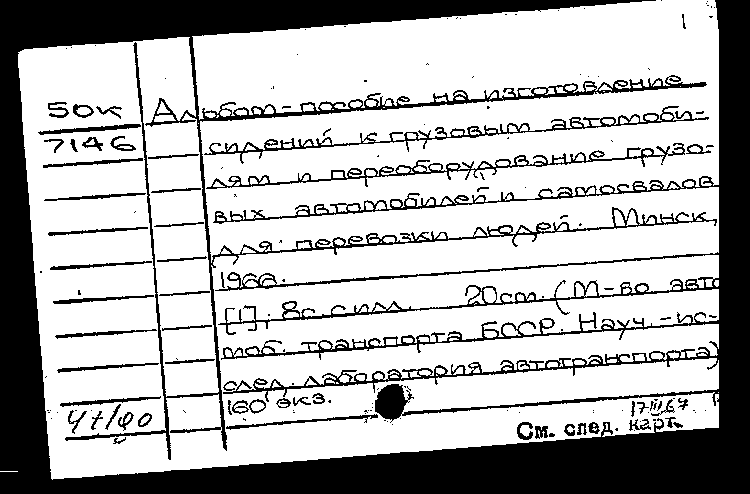 50к Альбом-пособие на изготовление
7146 сидений к грузовым автомоби-
лям и переоборудование грузо-
вых автомобилей и самосвалов
для перевозки людей. Минск,
1966.
[1], 8с. с илл. 20см. (М-во авто
моб. транспорта БССР. Науч.-ис-
след. лаборатория автотранспорта)
160 экз.
17III67
См. след. карт.